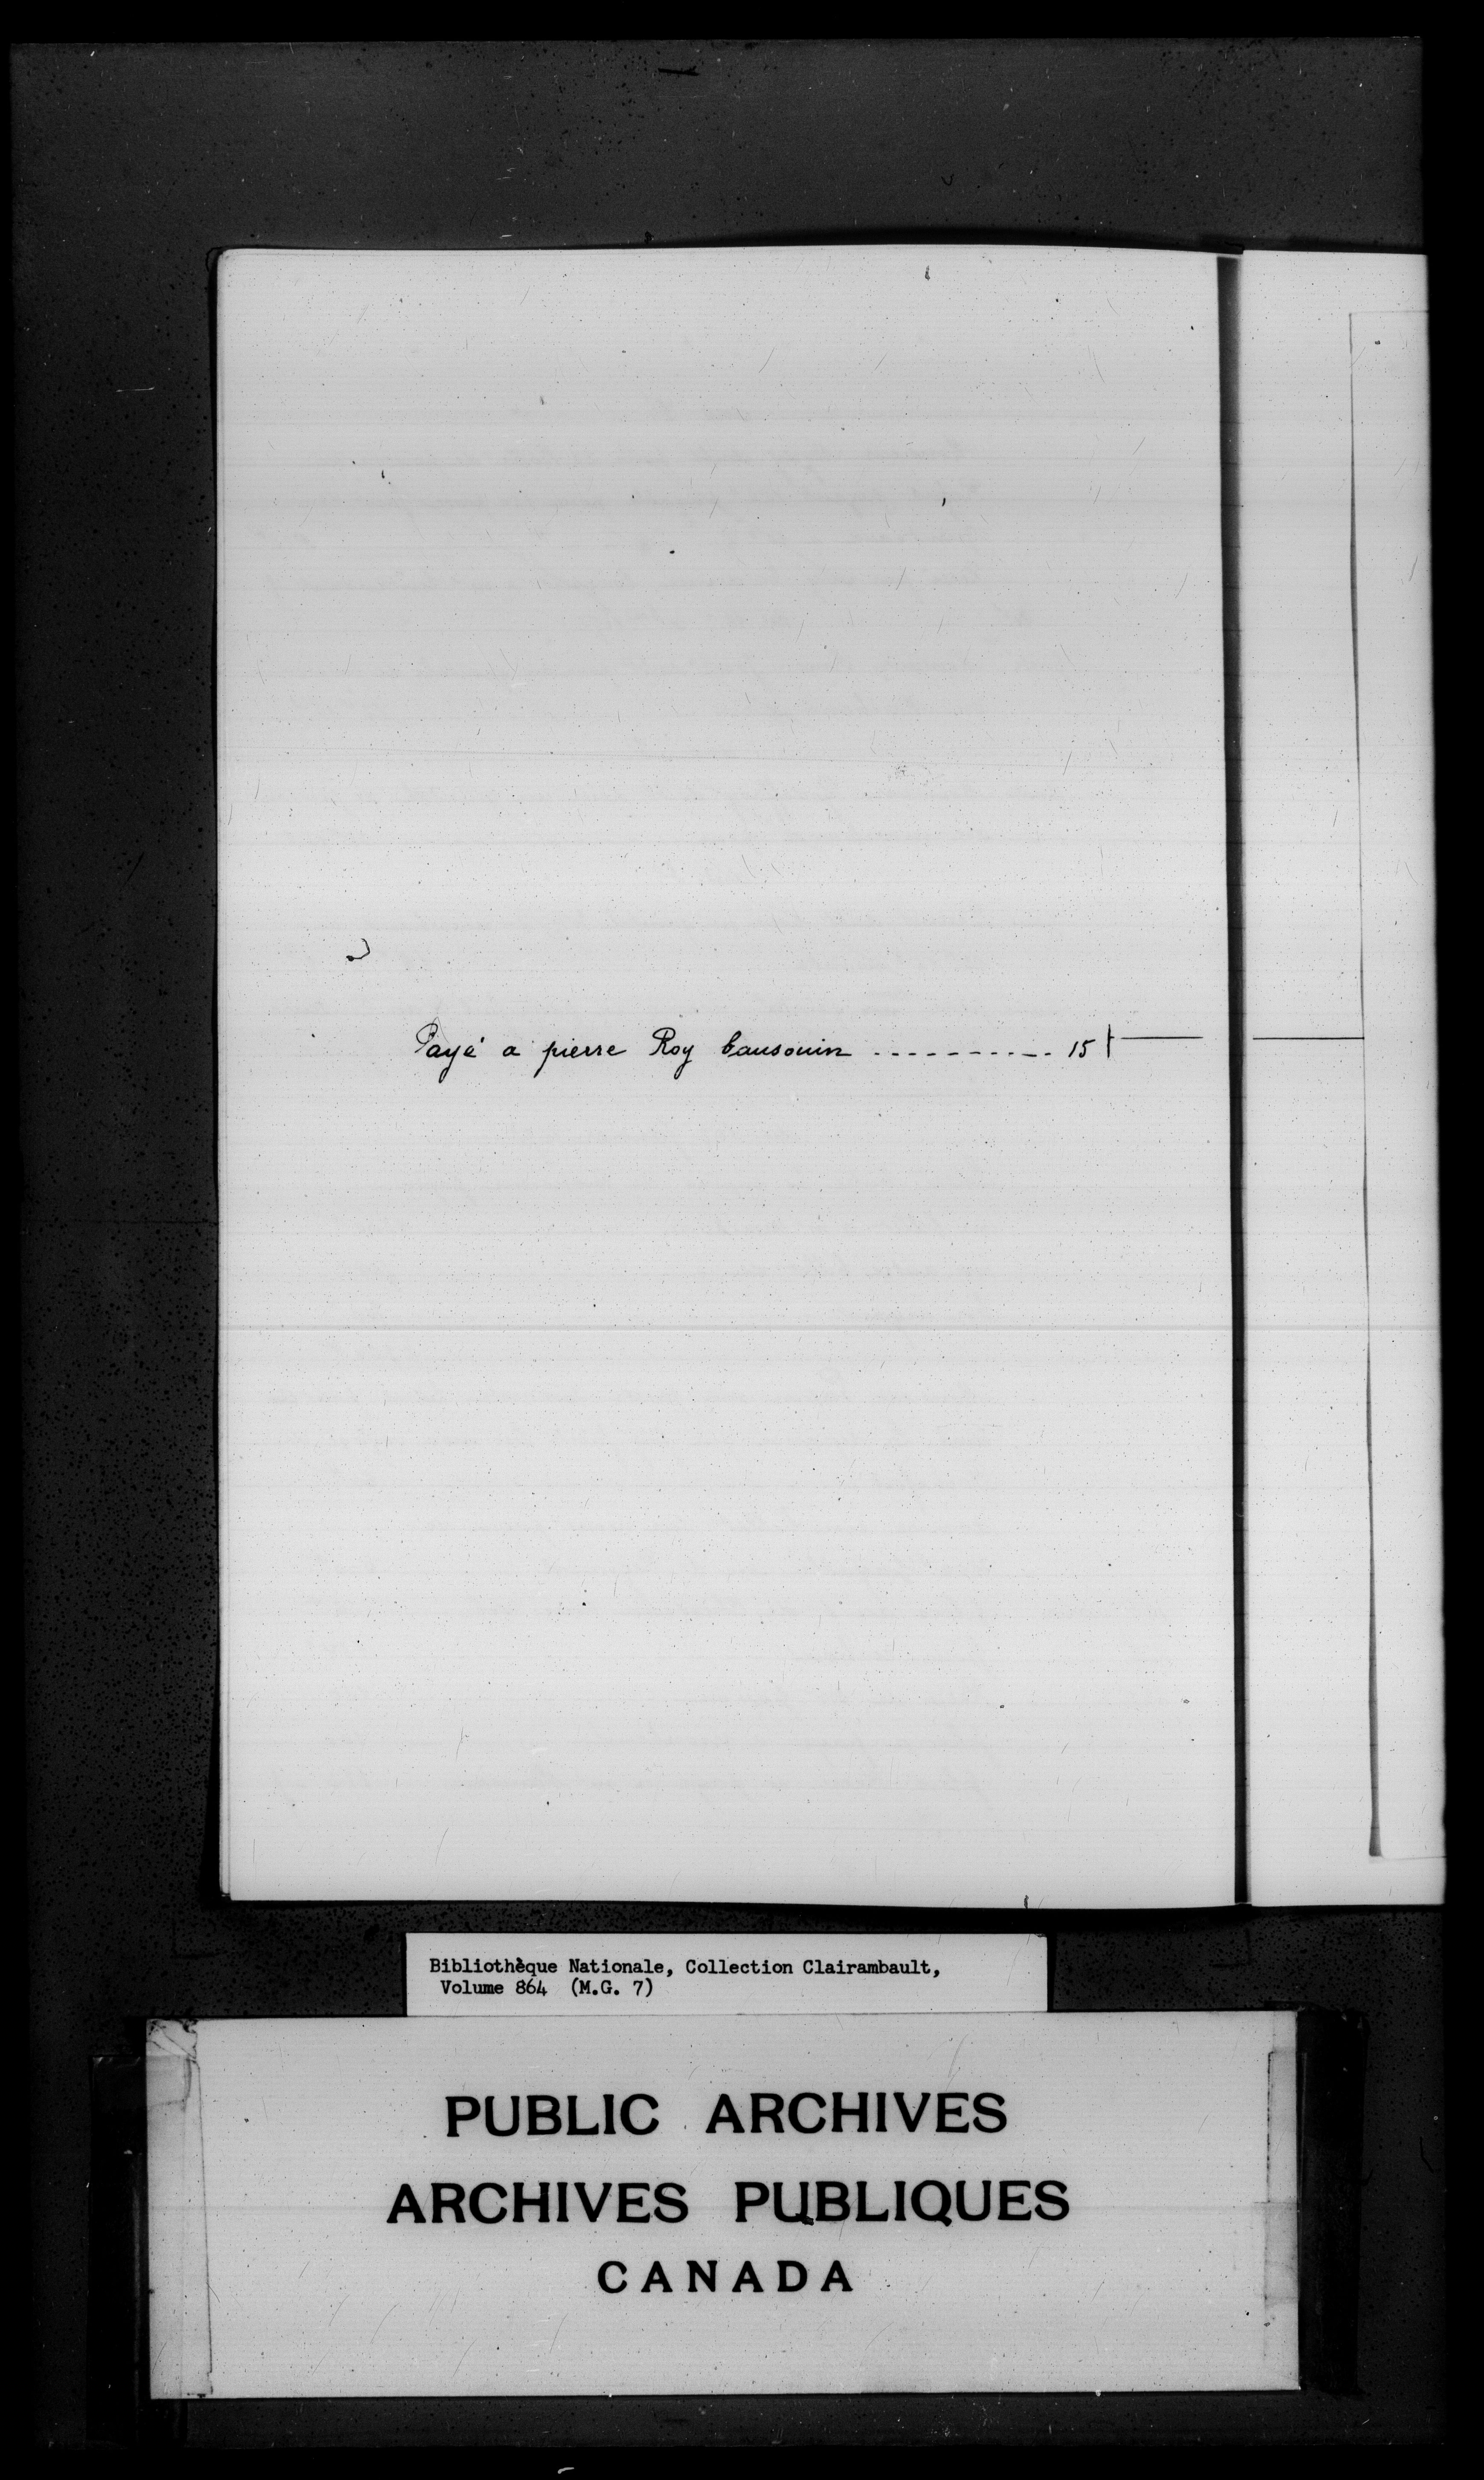 Payé a pierre Roy bausouin ----------- 15 ƚ ——
Bibliothèque Nationale, Collection Clairambault,
Volume 864 (M.G. 7)
PUBLIC ARCHIVES
ARCHIVES PUBLIQUES
CANADA